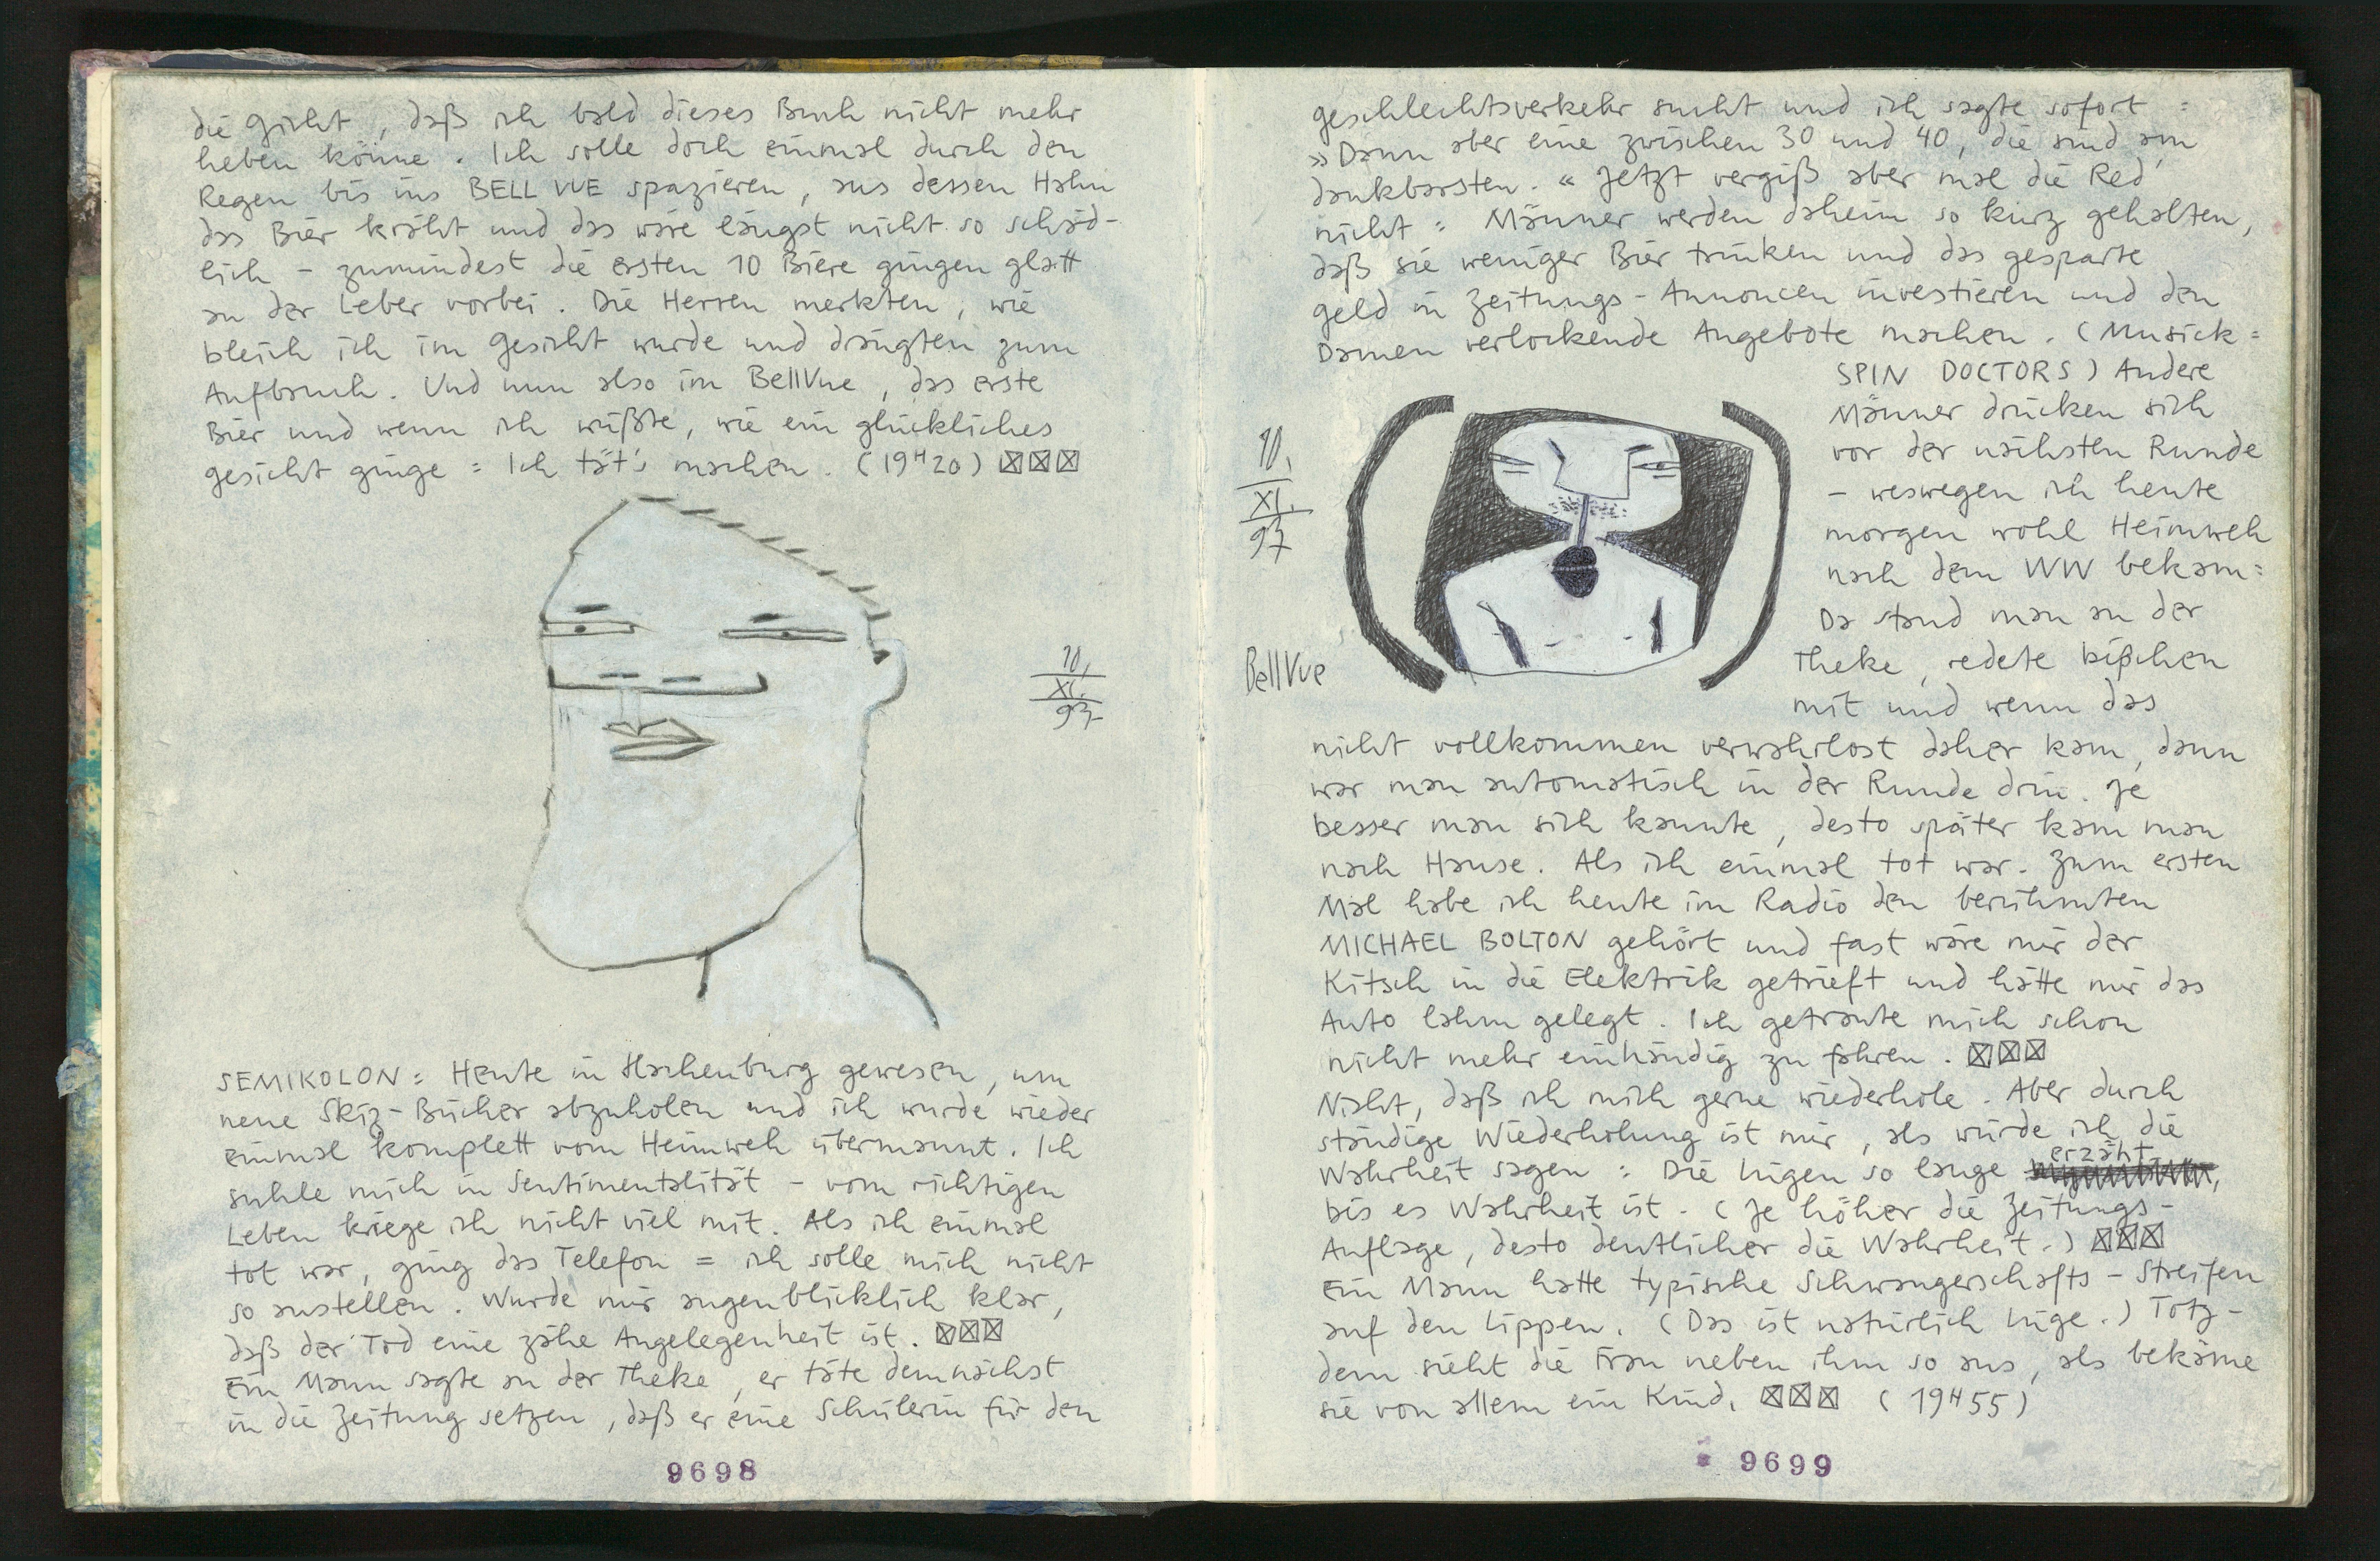 die Gicht, daß ich bald dieses Buch nicht mehr
heben könne. Ich solle doch einmal durch den
Regen bis ins BELL VUE spazieren, aus dessen Hahn
das Bier kräht und das wäre längst nicht so schäd-
lich - zumindest die ersten 10 Biere gingen glatt
an der Leber vorbei. Die Herren merkten, wie
bleich ich im Gesicht wurde und drängten zum
Aufbruch. Und nun also im BellVue, das erste
Bier und wenn ich wüßte, wie ein glückliches
Gesicht ginge = Ich tät's machen. (19H20) ☒☒☒
10.
XI.
93
SEMIKOLON = Heute in Hachenburg gewesen, um
neue Skiz-Bücher abzuholen und ich wurde wieder
einmal komplett vom Heimweh übermannt. Ich
suhle mich in Sentimentalität - vom richtigen
Leben kriege ich nicht viel mit. Als ich einmal
tot war, ging das Telefon = ich solle mich nicht
so anstellen. Wurde mir augenblicklich klar,
daß der Tod eine zähe Angelegenheit ist. ☒☒☒
Ein Mann sagte an der Theke, er täte demnächst
in die Zeitung setzen, daß er eine Schülerin für den
9698
Geschlechtsverkehr sucht und ich sagte sofort =
»Dann aber eine zwischen 30 und 40, die sind am
dankbarsten.« Jetzt vergiß aber mal die Red'
nicht = Männer werden daheim so kurz gehalten,
daß sie weniger Bier trinken und das gesparte
Geld in Zeitungs-Annoncen investieren und den
Damen verlockende Angebote machen. (Musick =
SPIN DOCTORS) Andere
Männer drücken sich
vor der nächsten Runde
- weswegen ich heute
morgen wohl Heimweh
nach dem WW bekam =
Da stand man an der
Theke, redete bißchen
mit und wenn das
10.
XI.
93
BellVue
nicht vollkommen verwahrlost daher kam, dann
war man automatisch in der Runde drin. Je
besser man sich kannte, desto später kam man
nach Hause. Als ich einmal tot war. Zum ersten
Mal habe ich heute im Radio den berühmten
MICHAEL BOLTON gehört und fast wäre mir der
Kitsch in die Elektrik getrieft und hätte mir das
Auto lahm gelegt. Ich getraute mich schon
nicht mehr einhändig zu fahren. ☒☒☒
Nicht, daß ich mich gerne wiederhole. Aber durch
ständige Wiederholung ist mir, als würde ich die
Wahrheit sagen = Die Lügen so lange erzählt,
bis es Wahrheit ist. (Je höher die Zeitungs-
Auflage, desto deutlicher die Wahrheit.) ☒☒☒
Ein Mann hatte typische Schwangerschafts-Streifen
auf den Lippen. (Das ist natürlich Lüge.) Totz-
dem sieht die Frau neben ihm so aus, als bekäme
sie von allem ein Kind. ☒☒☒ (19H55)
9699